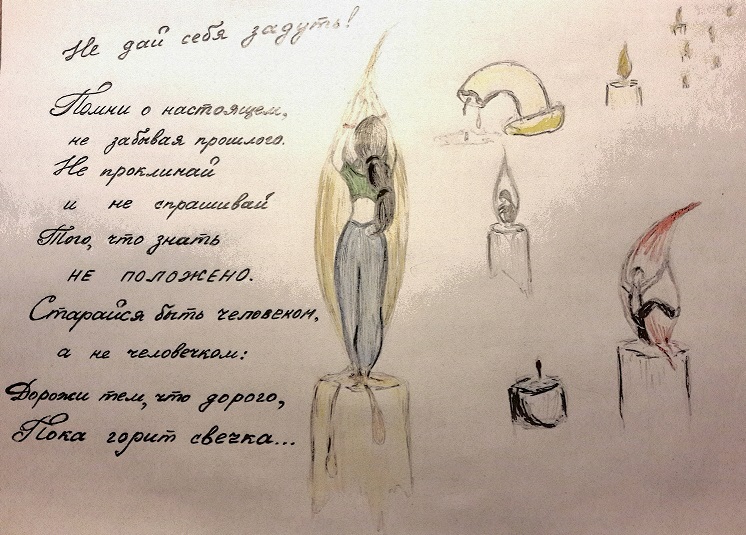 Не дай себя задуть!
Помни о настоящем,
не забывая прошлого.
Не проклинай
и не спрашивай
Того, что знать
не положено.
Старайся быть человеком,
а не человечком:
Дорожи тем, что дорого,
Пока горит свечка...